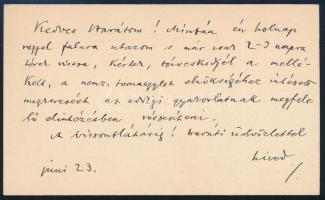 Kedves Barátom! Miután én holnap
reggel falura utazom s már csak 2-3 napra
térek vissza, kérlek, szíveskedjél a mellé-
kelt, a nemz. tornaegylet elnökségéhez intézett
megkeresést az eddigi gyakorlatnak megfele
lő elintézésben részesíteni.
A viszontlátásig! baráti üdvözlettel
híved
juni 23.